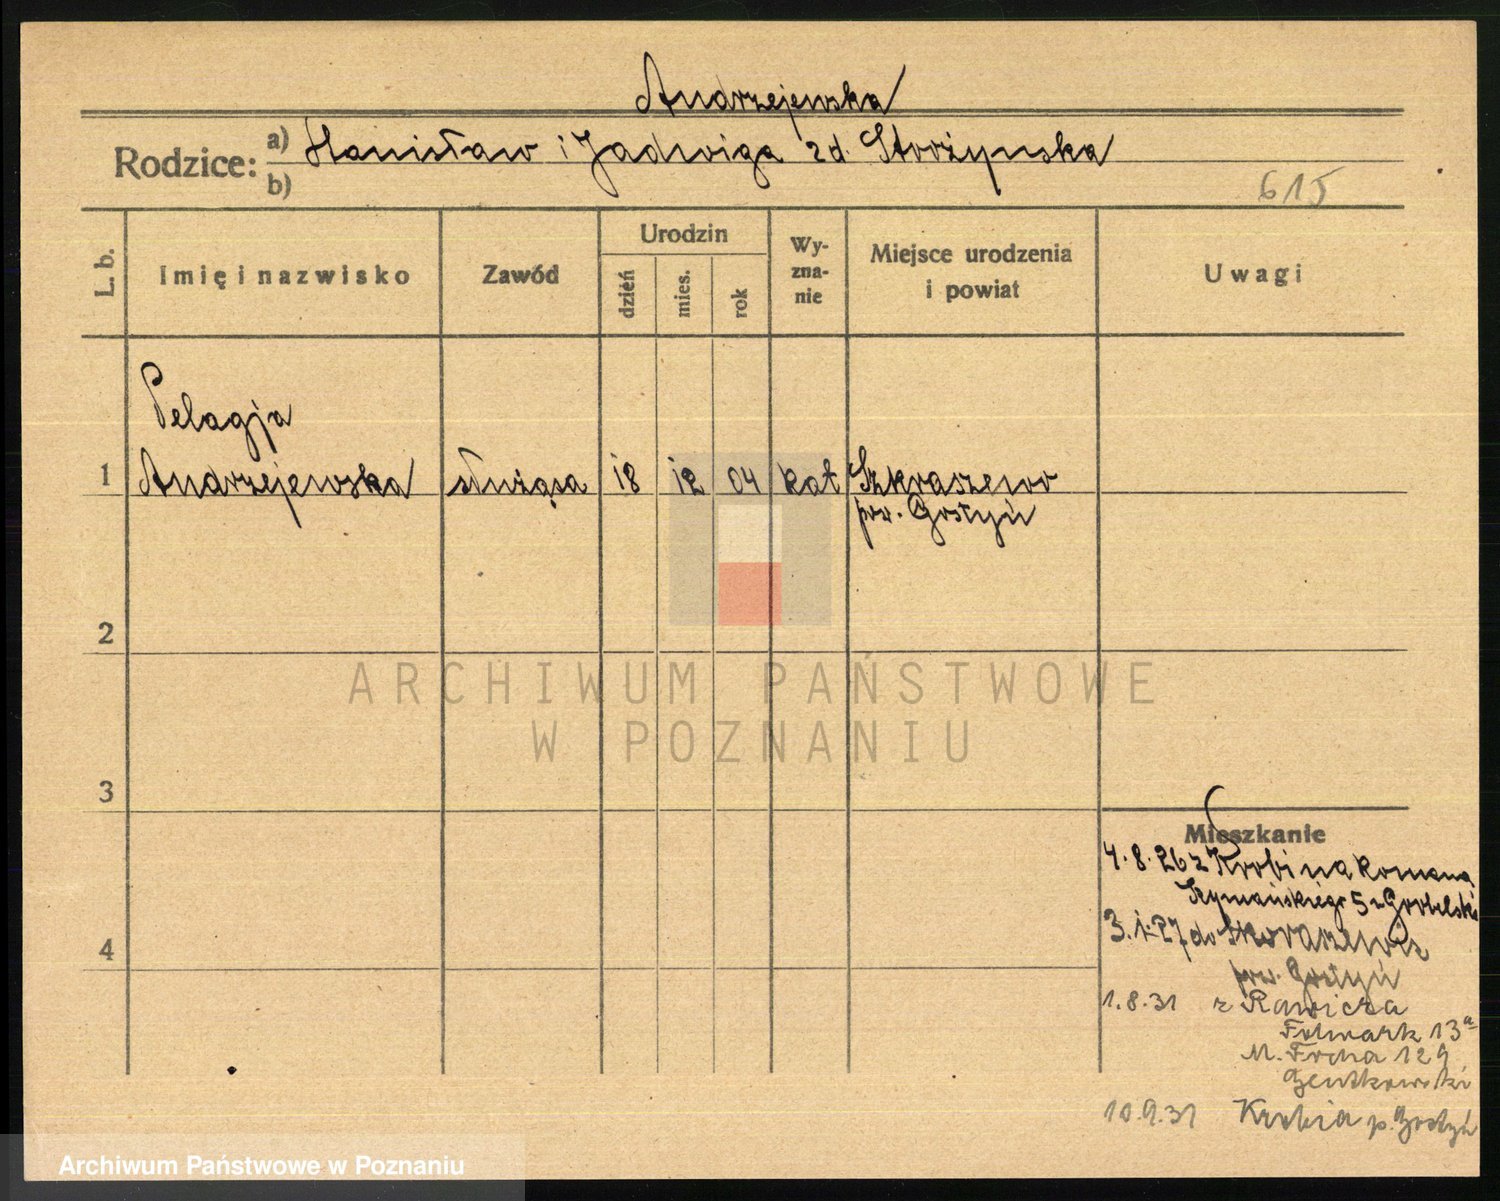 Andrzejewska
Rodzice: a) Stanisław i Jadwiga zd. Strożynska
b)
615
L. b.
Imię i nazwisko
Zawód
Urodzin
dzień
mies.
rok
Wy-
zna-
nie
Miejsce urodzenia
i powiat
Uwagi
Pelagja
1 Andrzejewska służąca 18 12 04 kat Szkraszewo
pow. Gostyń
2
ARCHIWUM PAŃSTWOWE
W POZNANIU
3
Mieszkanie
4.8.26 z Krobi na Romana
Szymańskiego 5
4
3.1.27 do
pow. Gostyń
1.8.31 z Rawicza
Folwark 13a
M. Focha 129
10.9.31 Krobia p. Gostyń
Archiwum Państwowe w Poznaniu